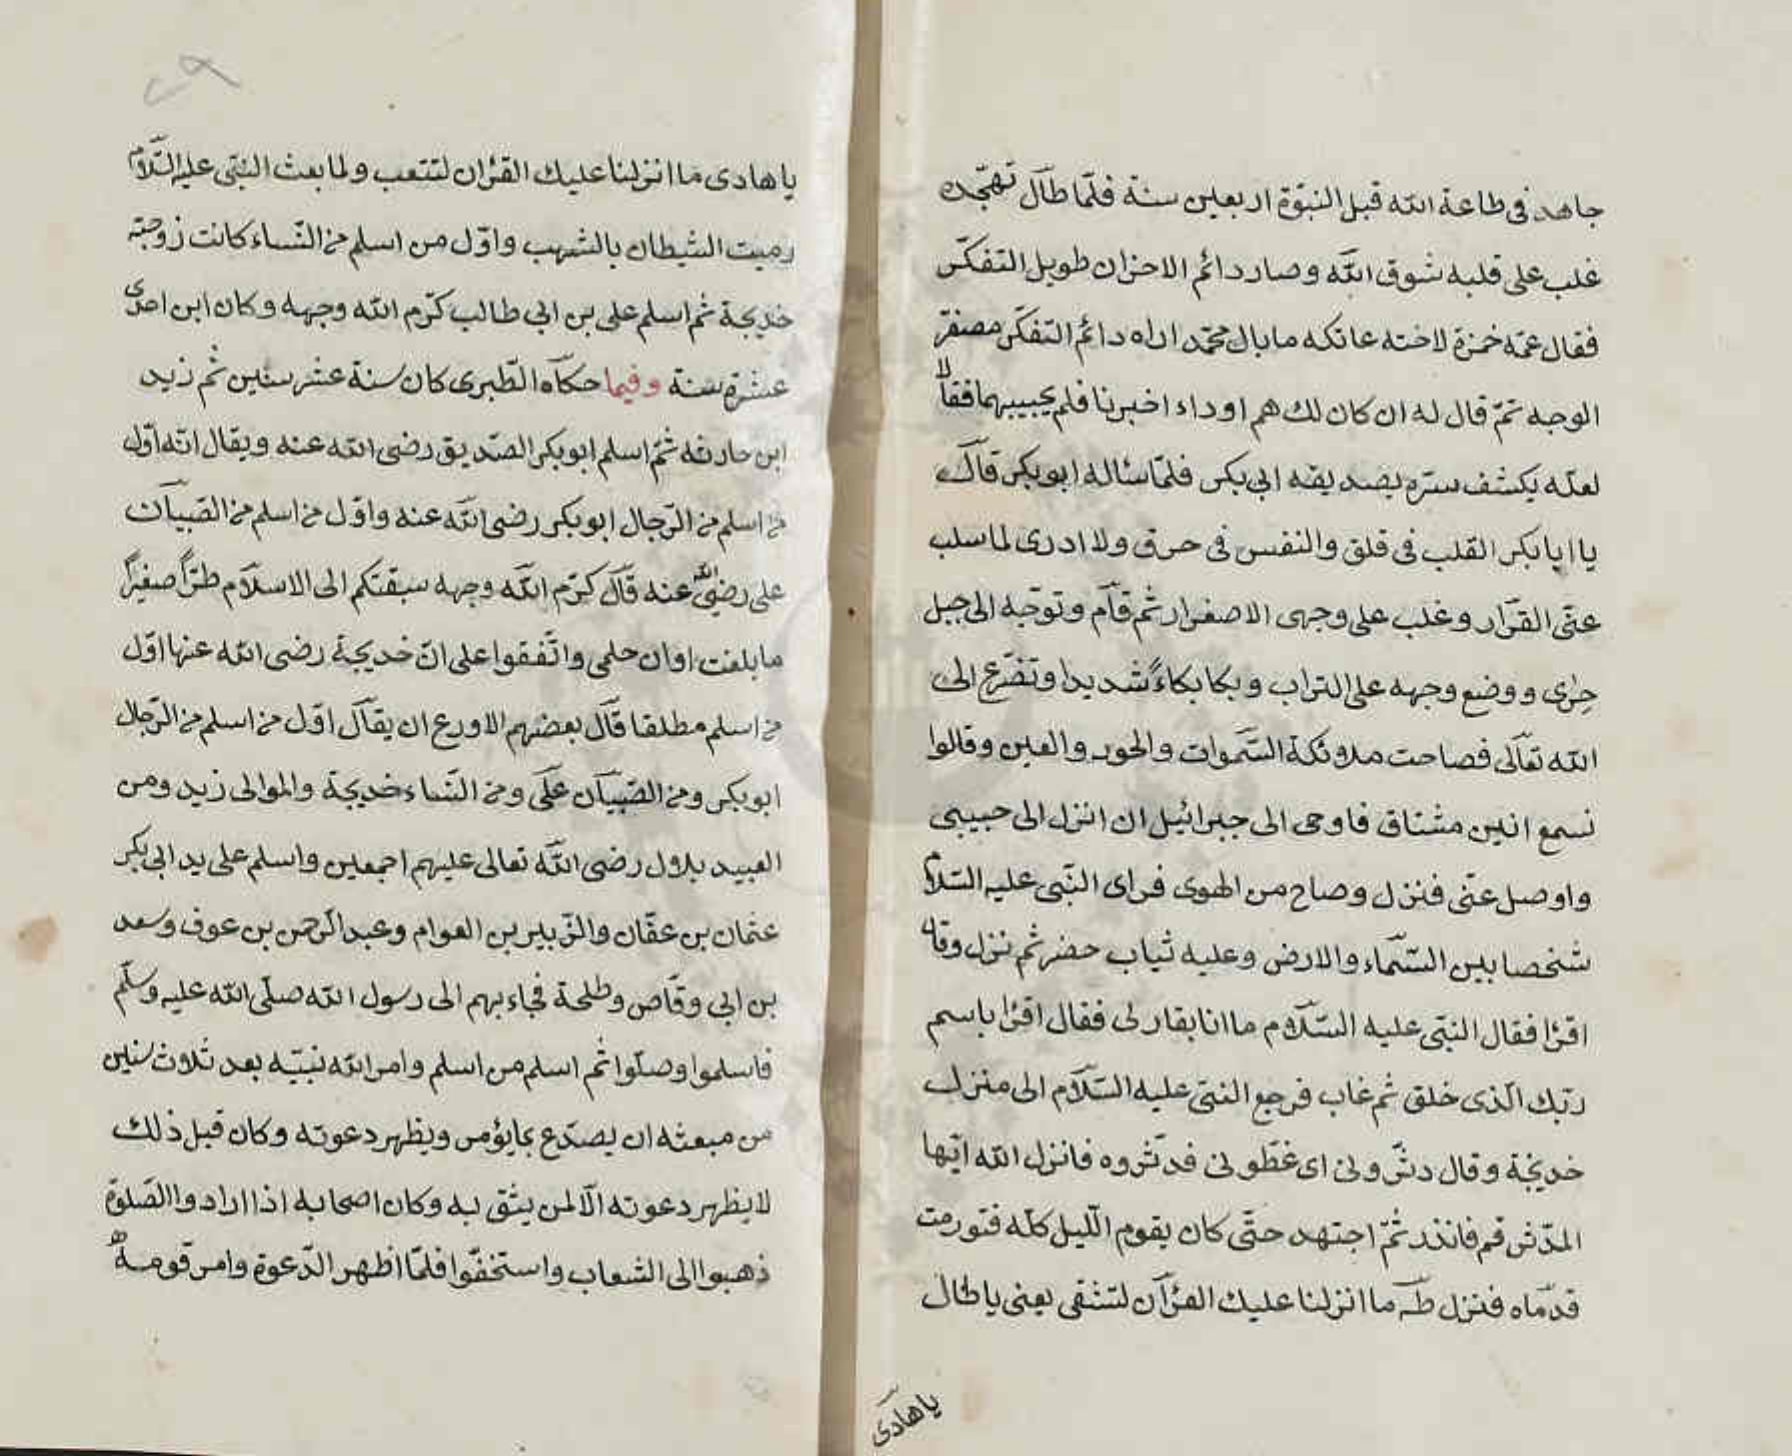 جاهد فى طاعة الله قبل النبوّة اربعين سنة فلمّا طال تهجّده
غلب على قلبه شوق الله وصار دائم الاحزان طويل التفكّر
فقال عمّه حمزة لاخته عاتكه مابال محمّد اراه دائم التفكّر مصفرّ
الوجه ثمّ قال له ان كان لك هم اوداء اخبرنا فلم يجيبهما فقالا
لعلّه يكشف سرّه بصديقه ابى بكر فلمّا سئاله ابوبكر قال
يا ابابكر القلب فى قلق والنفس فى حرق ولا ادرى لما سلب
عنّى القرار وغلب على وجهى الاصفرار ثم قام وتوجّه الى جبل
حِرٰى ووضع وجهه على التراب وبكا بكاءً شديدا وتضّرع الى
الله تعالى فصاحت ملائكة السّموات والحور والعين وقالوا
نسمع انين مشتاق فاوحى الى جبرائيل ان انزل الى حبيبى
واوصل عنّى فنزل وصاح من الهوى فراى النّبى عليه السّلام
شخصا بين السّماء والارض وعليه ثياب خضر ثم نزل وقال
اقرٔا فقال النبّى عليه السّلام ما انا بقارى فقال اقرٔا باسم
ربّك الّذى خلق ثم غاب فرجع النبّى عليه السّلام الى منزل
خديجة وقال دثّرونى اى غطّونى فدثّروه فانزل الله ايّها
المدّثر قم فانذر ثمّ اجتهد حتّى كان يقوم الّليل كلّه فتورمت
قدماه فنزل طه ما انزلنا عليك القرٔآن لتشقى يعنى ياطال
ياهادى
ياهادى ما انزلنا عليك القرٔان لتتعب ولما بعث النبّى عليه السّلام
رميت الشيطان بالشهب واوّل من اسلم من النّساء كانت زوجته
خديجة ثم اسلم على بن ابى طالب كرّم الله وجهه وكان ابن احدى
عشرة سنة وفيما حكاه الطّبرى كان سنة عشر سنين ثم زيد
ابن حارثه ثمّ اسلم ابوبكر الصّديق رضى الله عنه ويقال انّه اوّل
من اسلم من الرّجال ابوبكر رضى الله عنه واوّل من اسلم من الصّبيان
على رضى الله عنه قال كرّم الله وجهه سبقتكم الى الاسلام طرّاً صغيراً
مابلغت اوان حلمى واتّفقوا على انّ خديجة رضى الله عنها اوّل
من اسلم مطلقا قال بعضهم الاورع ان يقال اوّل من اسلم من الرّجال
ابوبكر ومن الصّبيان على ومن النّساء خديجة والموالى زيد ومن
العبيد بلال رضى الله تعالى عليهم اجمعين واسلم على يد ابى بكر
عثمان بن عفّان والزّبير بن العوام وعبد الرّحمن بن عوف وسعد
بن ابى وقاص وطلحة فجاء بهم الى رسول الله صلّى الله عليه وسلّم
فاسلموا وصلّوا ثم اسلم من اسلم وامر الله نبيّه بعد ثلاث سنين
من مبعثه ان يصدّع بمايؤمر ويظهر دعوته وكان قبل ذلك
لايظهر دعوته الّا لمن يثق به وكان اصحابه اذا ارادوا الصّلوة
ذهبوا الى الشعاب واستخفّوا فلمّا اظهر الدّعوة وامر قومه